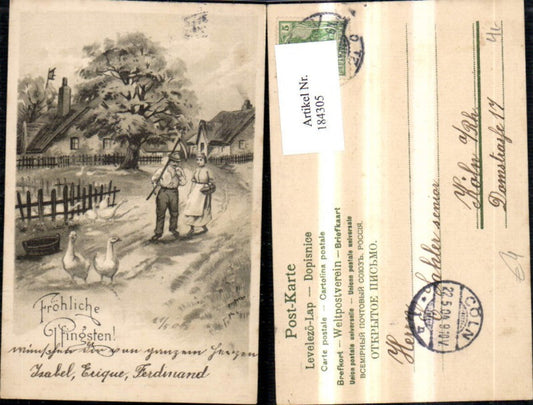 Fröhliche
Pfingsten!
wünschen von ganzem Herzen
Isabel, Erique, Ferdinand
Artikel Nr.
184305
5
Post-Karte
Levelező-Lap — Dopisnice
Carte postale — Cartolina postale
Brefkort — Weltpostverein — Briefkaart
Union postale universelle — Unione postale universale
ВСЕМІРНЫЙ ПОЧТОВЫЙ СОЮЗЪ. РОССІЯ.
ОТКРЫТОЕ ПИСЬМО.
Herrn
senior
Köln a/Rh.
Domstraße 17
CÖLN
22.5.04